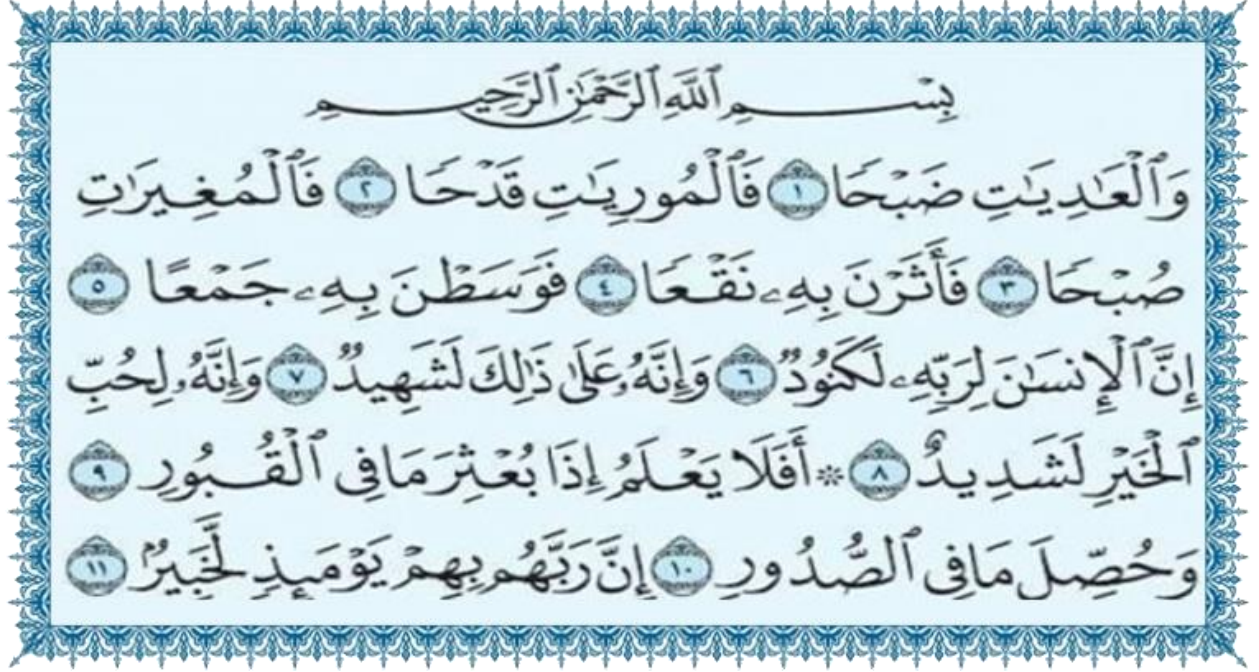 بِسْمِ ٱللَّهِ ٱلرَّحْمَٰنِ ٱلرَّحِيمِ
وَٱلْعَٰدِيَٰتِ ضَبْحًا ١ فَٱلْمُورِيَٰتِ قَدْحًا ٢ فَٱلْمُغِيرَٰتِ
صُبْحًا ٣ فَأَثَرْنَ بِهِۦ نَقْعًا ٤ فَوَسَطْنَ بِهِۦ جَمْعًا ٥
إِنَّ ٱلْإِنسَٰنَ لِرَبِّهِۦ لَكَنُودٌ ٦ وَإِنَّهُۥ عَلَىٰ ذَٰلِكَ لَشَهِيدٌ ٧ وَإِنَّهُۥ لِحُبِّ
ٱلْخَيْرِ لَشَدِيدٌ ٨ ۞ أَفَلَا يَعْلَمُ إِذَا بُعْثِرَ مَا فِى ٱلْقُبُورِ ٩
وَحُصِّلَ مَا فِى ٱلصُّدُورِ ١٠ إِنَّ رَبَّهُم بِهِمْ يَوْمَئِذٍ لَّخَبِيرٌۢ ١١